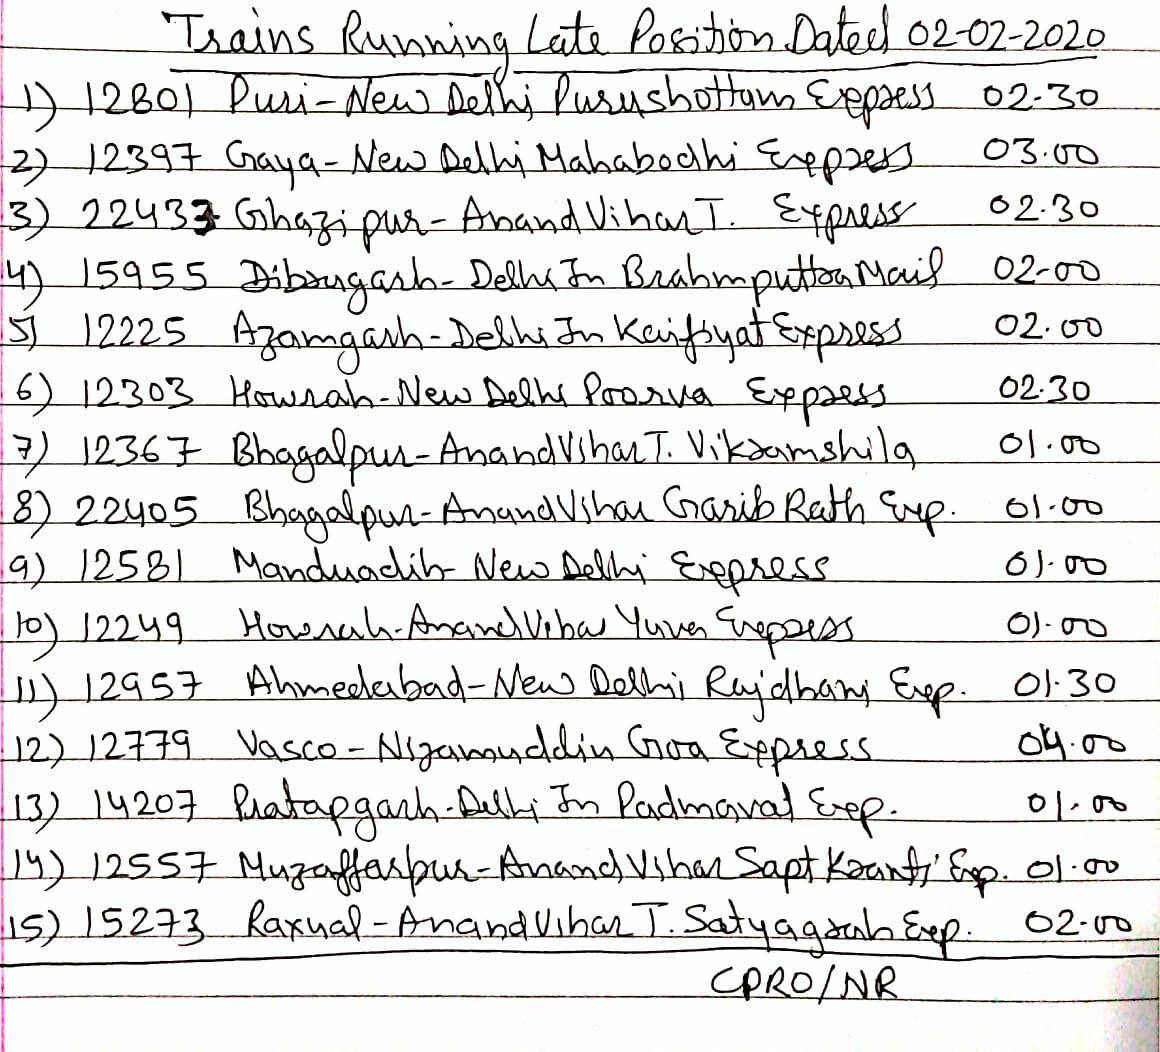 Trains Running Late Position Dated 02-02-2020
1) 12801 Puri-New Delhi Purushottam Express 02.30
2) 12397 Gaya-New Delhi Mahabodhi Express 03.00
3) 22433 Ghazipur-Anand Vihar T. Express 02.30
4) 15955 Dibrugarh-Delhi Jn Brahmputtra Mail 02-00
5) 12225 Azamgarh-Delhi Jn Kaifiyat Express 02.00
6) 12303 Howrah-New Delhi Poorva Express 02.30
7) 12367 Bhagalpur-Anand Vihar T. Vikramshila 01.00
8) 22405 Bhagalpur-Anand Vihar Garib Rath Exp. 01.00
9) 12581 Manduadih-New Delhi Express 01.00
10) 12249 Howrah-Anand Vihar Yuva Express 01.00
11) 12957 Ahmedabad-New Delhi Rajdhani Exp. 01.30
12) 12779 Vasco-Nizamuddin Goa Express 04.00
13) 14207 Pratapgarh-Delhi Jn Padmavat Exp. 01.00
14) 12557 Muzaffarpur-Anand Vihar Sapt Kranti Exp. 01.00
15) 15273 Raxual-Anand Vihar T. Satyagrah Exp. 02.00
CPRO/NR